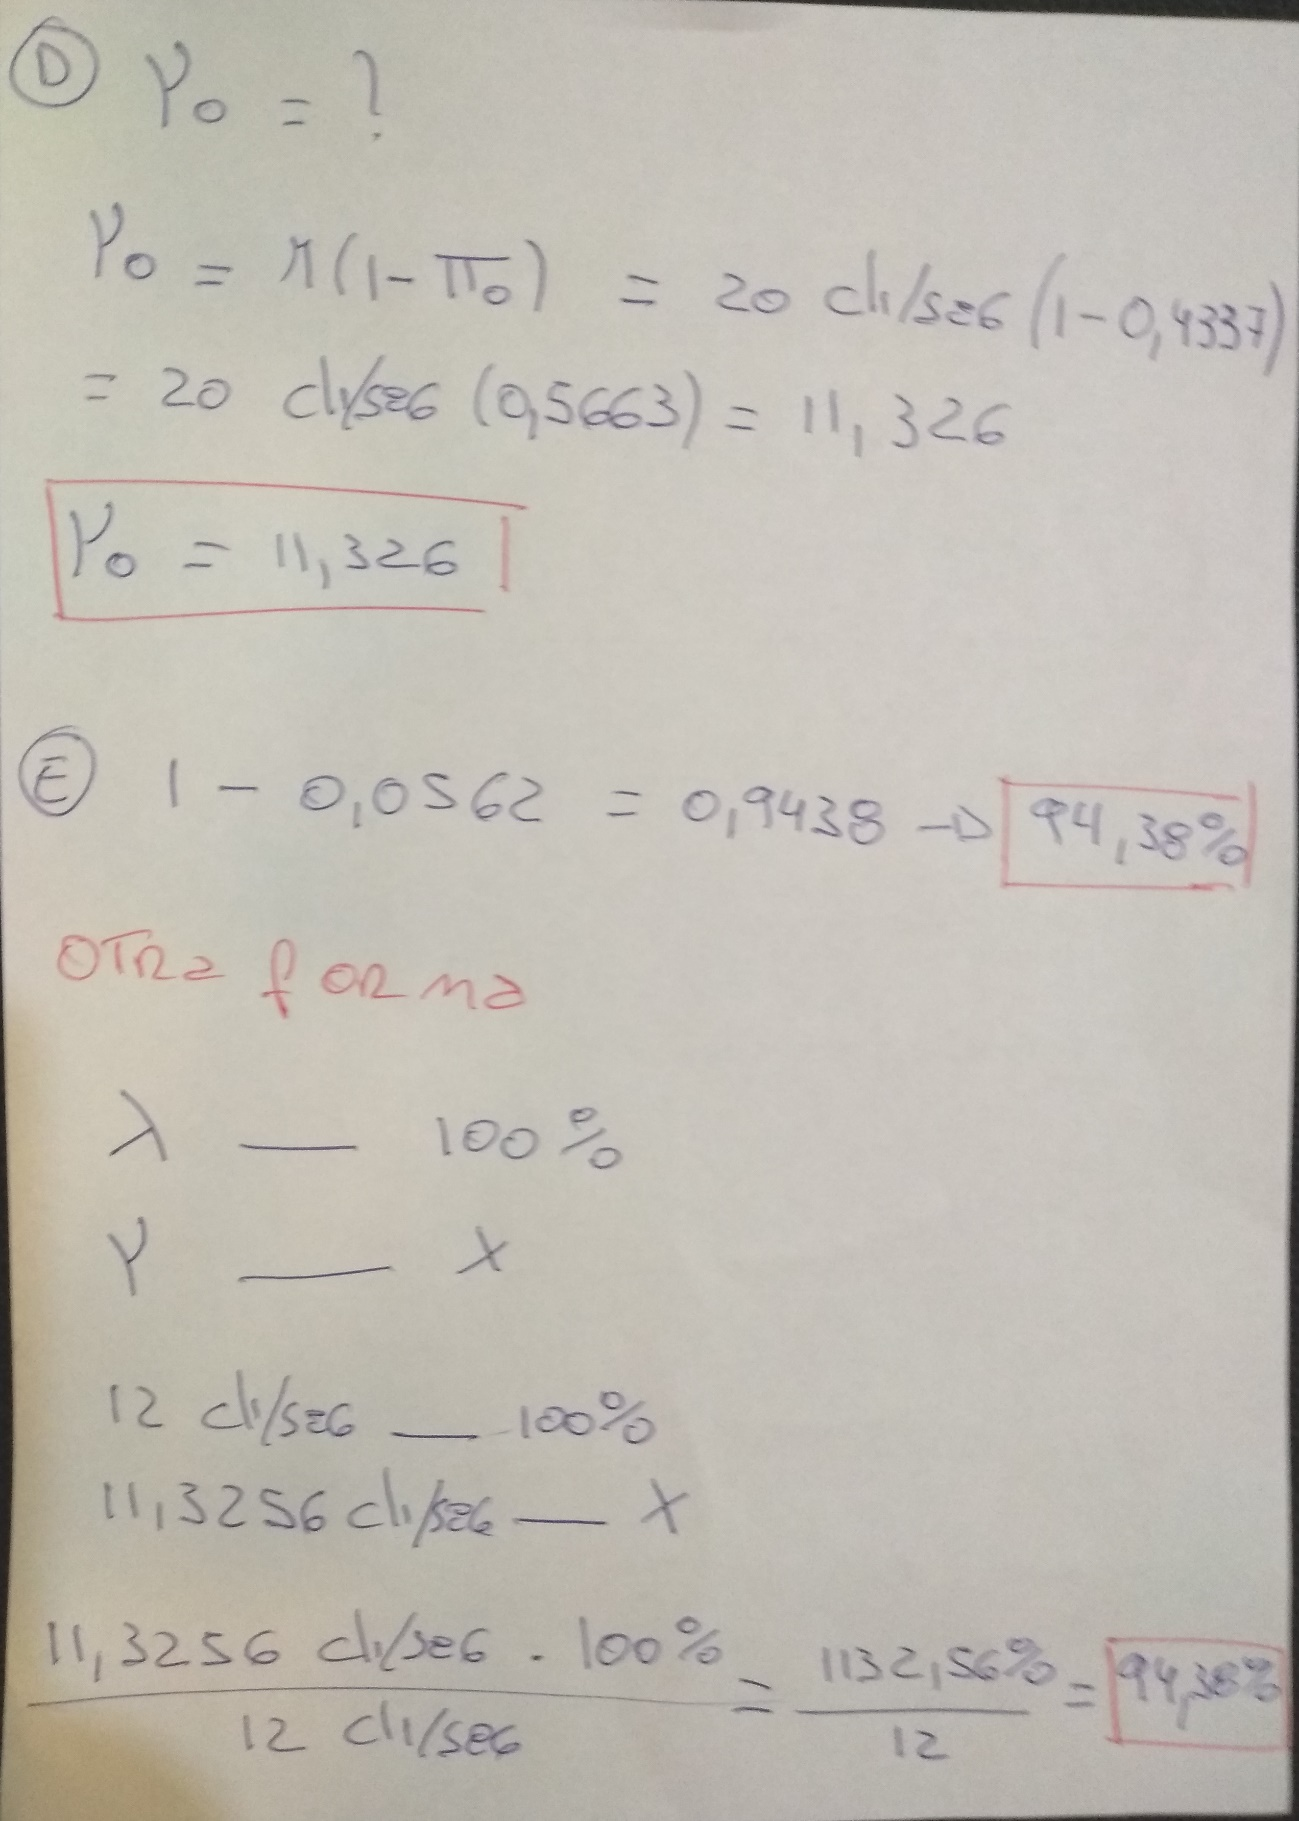 D γ₀ = ?
γ₀ = μ(1-π₀) = 20 cli/seg (1-0,4337)
= 20 cli/seg (0,5663) = 11,326
γ₀ = 11,326
E 1 - 0,0562 = 0,9438 → 94,38%
OTRa fORma
λ — 100%
γ — X
12 cli/seg — 100%
11,3256 cli/seg — X
11,3256 cli/seg . 100% = 1132,56% = 94,38%
12 cli/seg 12